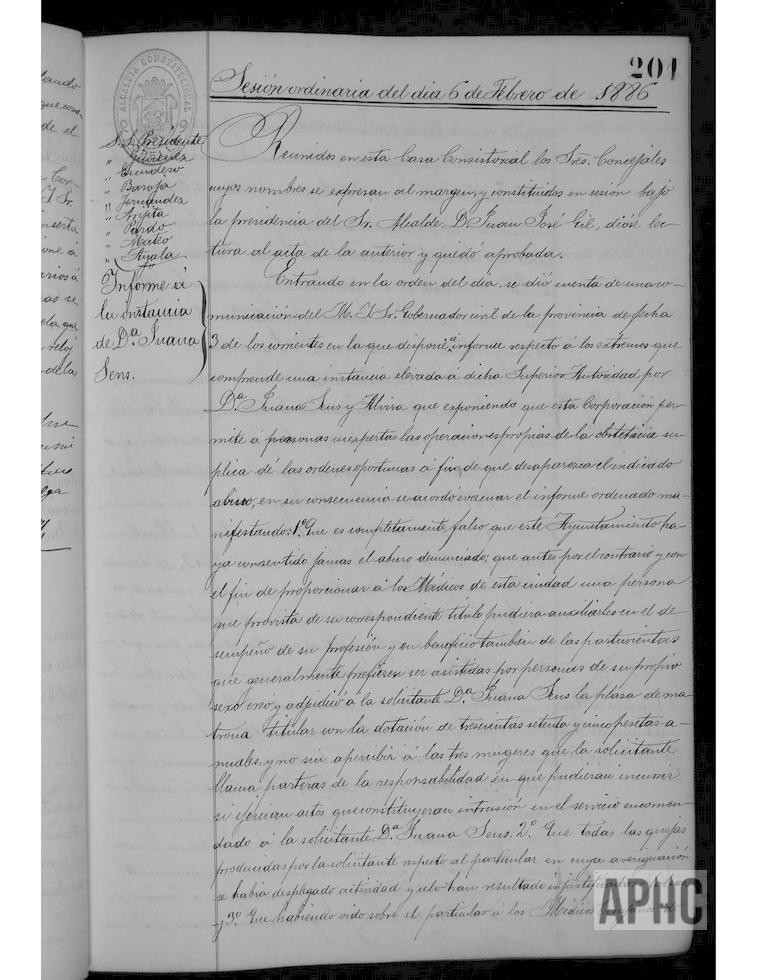 201
Sesión ordinaria del dia 6 de Febrero de 1886
ALCALDIA CONSTITUCIONAL
S. S. Presidente
" Gimenez
" Escudero
" Baroja
" Fernandez
" Angita
" Pardo
" Mateo
" Ayala
Informe á
la instancia
de Dª Juana
Sens.
Reunidos en esta Casa Consistorial los Sres. Concejales
cuyos nombres se expresan al margen, y constituidos en sesión bajo
la presidencia del Sr. Alcalde D. Juan José Gil, diose lec-
tura al acta de la anterior y quedó aprobada.
Entrando en la orden del dia, se dió cuenta de una co-
municación del M. I. Sr. Gobernador civil de la provincia de fecha
3 de los corrientes en la que dispone se informe respecto á los extremos que
comprende una instancia elevada á dicha Superior Autoridad por
Dª Juana Sens y Alvira que exponiendo que esta Corporación per-
mite á personas inespertas las operaciones propias de la obstetricia su-
plica dé las ordenes oportunas á fin de que desaparezca el indicado
abuso, en su consecuencia se acordó evacuar el informe ordenado ma-
nifestando: 1º Que es completamente falso que este Ayuntamiento ha-
ya consentido jamas el abuso denunciado; que antes por el contrario y con
el fin de proporcionar á los Médicos de esta ciudad una persona
que provista de su correspondiente titulo pudiera auxiliarles en el de-
sempeño de su profesión y en beneficio tambien de las parturientas
que generalmente prefieren ser asistidas por personas de su propio
sexo creó y adjudicó á la solicitante Dª Juana Sens la plaza de ma-
trona titular con la dotación de trescientas setenta y cinco pesetas a-
nuales, y no sin apercibir á las tres mugeres que la solicitante
llama parteras de la responsabilidad en que pudieran incurrir
si ejercian actos que constituyeran intrusión en el servicio encomen-
dado á la solicitante Dª Juana Sens. 2º Que todas las quejas
producidas por la solicitante respecto al particular en cuya averiguación
se habia desplegado actividad y celo han resultado injustificadas
y 3º Que habiendo oido sobre el particular á los Médicos
APHC